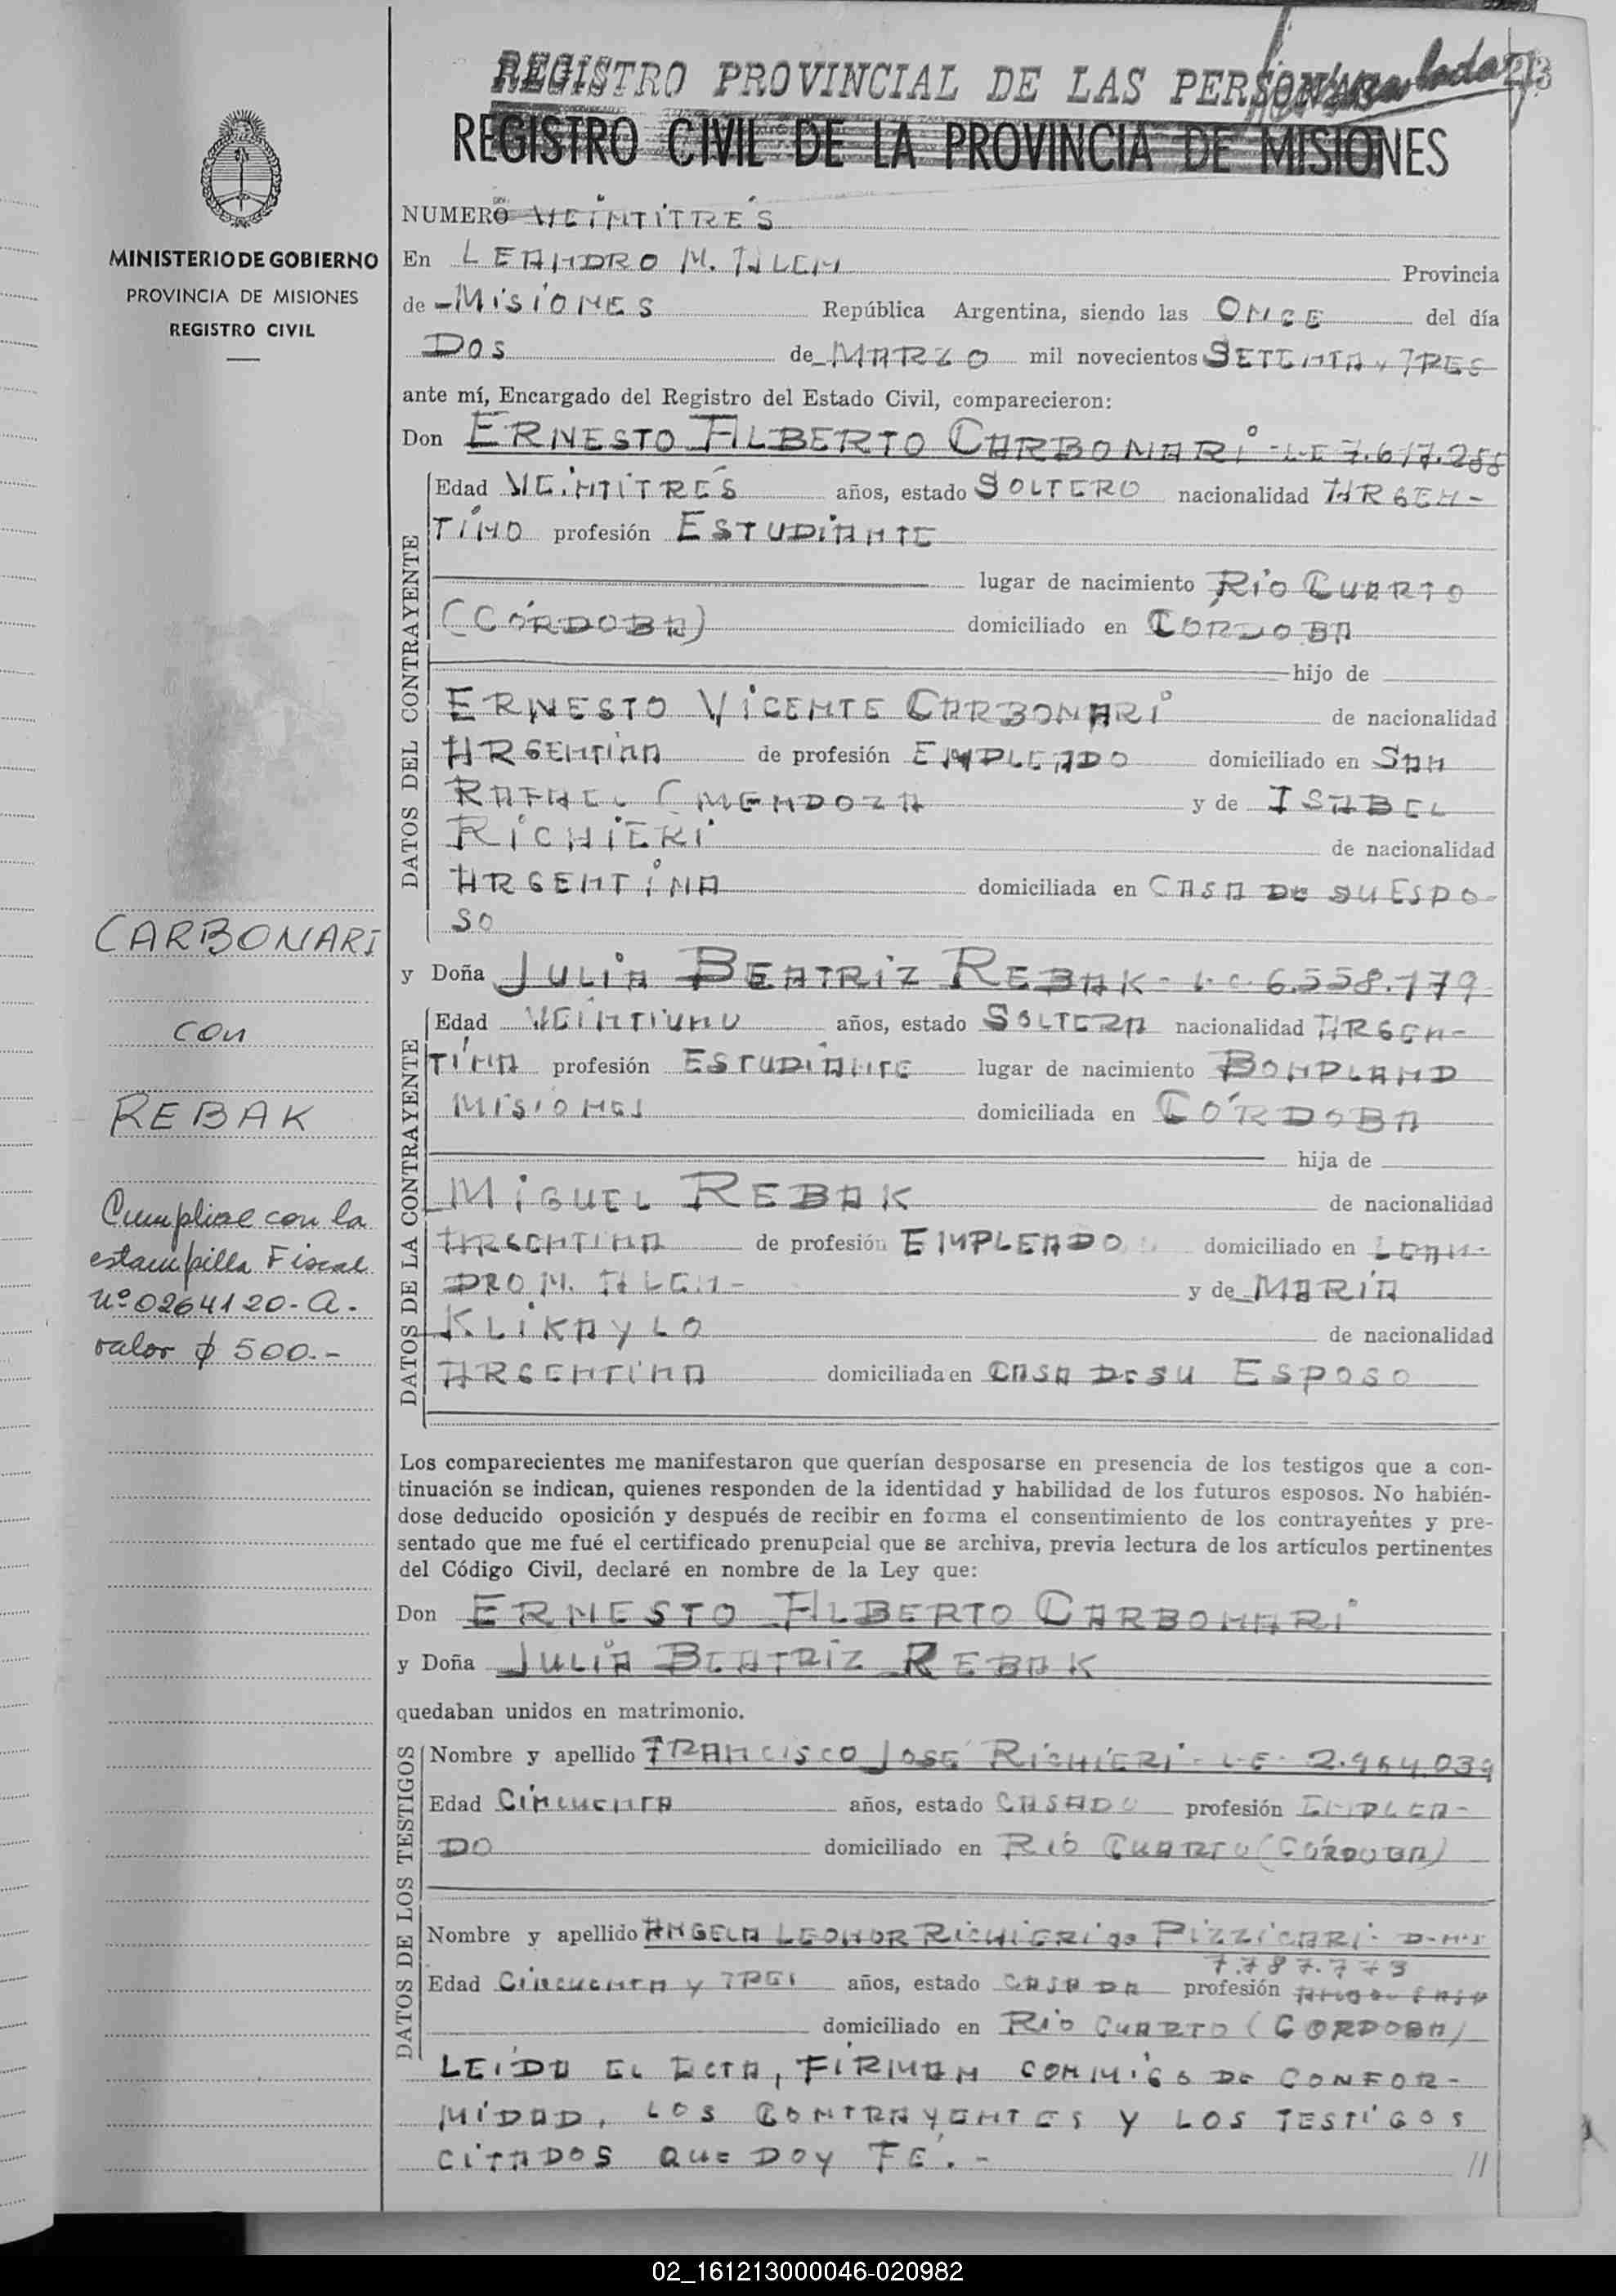 REGISTRO PROVINCIAL DE LAS PERSONAS
REGISTRO CIVIL DE LA PROVINCIA DE MISIONES
MINISTERIO DE GOBIERNO
PROVINCIA DE MISIONES
REGISTRO CIVIL
NUMERO VEINTITRÉS
En LEANDRO N. ALEM Provincia
de MISIONES República Argentina, siendo las ONCE del día
DOS de MARZO mil novecientos SETENTA y TRES
ante mí, Encargado del Registro del Estado Civil, comparecieron:
Don ERNESTO ALBERTO CARBONARI - L.E 7.617.288
DATOS DEL CONTRAYENTE
Edad VEINTITRÉS años, estado SOLTERO nacionalidad ARGEN-
TINO profesión ESTUDIANTE
lugar de nacimiento RÍO CUARTO
(CÓRDOBA) domiciliado en CÓRDOBA
hijo de
ERNESTO VICENTE CARBONARI de nacionalidad
ARGENTINA de profesión EMPLEADO domiciliado en SAN
RAFAEL (MENDOZA y de ISABEL
RICHIERI de nacionalidad
ARGENTINA domiciliada en CASA DE SU ESPO-
SO
CARBONARI
con
REBAK
Cumpliose con la
estampilla Fiscal
Nº 0264120-A.-
valor $ 500.-
y Doña JULIA BEATRIZ REBAK - L.C. 6.558.179
DATOS DE LA CONTRAYENTE
Edad VEINTIUNO años, estado SOLTERA nacionalidad ARGEN-
TINA profesión ESTUDIANTE lugar de nacimiento BONPLAND
MISIONES domiciliada en CÓRDOBA
hija de
MIGUEL REBAK de nacionalidad
ARGENTINA de profesión EMPLEADO domiciliado en LEAN-
DRO N. ALEM- y de MARÍA
KLIKAYLO de nacionalidad
ARGENTINA domiciliada en CASA DE SU ESPOSO
Los comparecientes me manifestaron que querían desposarse en presencia de los testigos que a con-
tinuación se indican, quienes responden de la identidad y habilidad de los futuros esposos. No habién-
dose deducido oposición y después de recibir en forma el consentimiento de los contrayentes y pre-
sentado que me fué el certificado prenupcial que se archiva, previa lectura de los artículos pertinentes
del Código Civil, declaré en nombre de la Ley que:
Don ERNESTO ALBERTO CARBONARI
y Doña JULIA BEATRIZ REBAK
quedaban unidos en matrimonio.
DATOS DE LOS TESTIGOS
Nombre y apellido FRANCISCO JOSÉ RICHIERI - L.E. 2.964.039
Edad CINCUENTA años, estado CASADO profesión EMPLEA-
DO domiciliado en RÍO CUARTO (CÓRDOBA)
Nombre y apellido ANGELA LEONOR RICHIERI de PIZZICARI - D.N.I
7.787.773
Edad CINCUENTA y TRES años, estado CASADA profesión
domiciliado en RÍO CUARTO (CORDOBA)
LEIDA EL ACTA, FIRMAN CONMIGO DE CONFOR-
MIDAD, LOS CONTRAYENTES Y LOS TESTIGOS
CITADOS QUE DOY FE.-
//
02_161213000046-020982